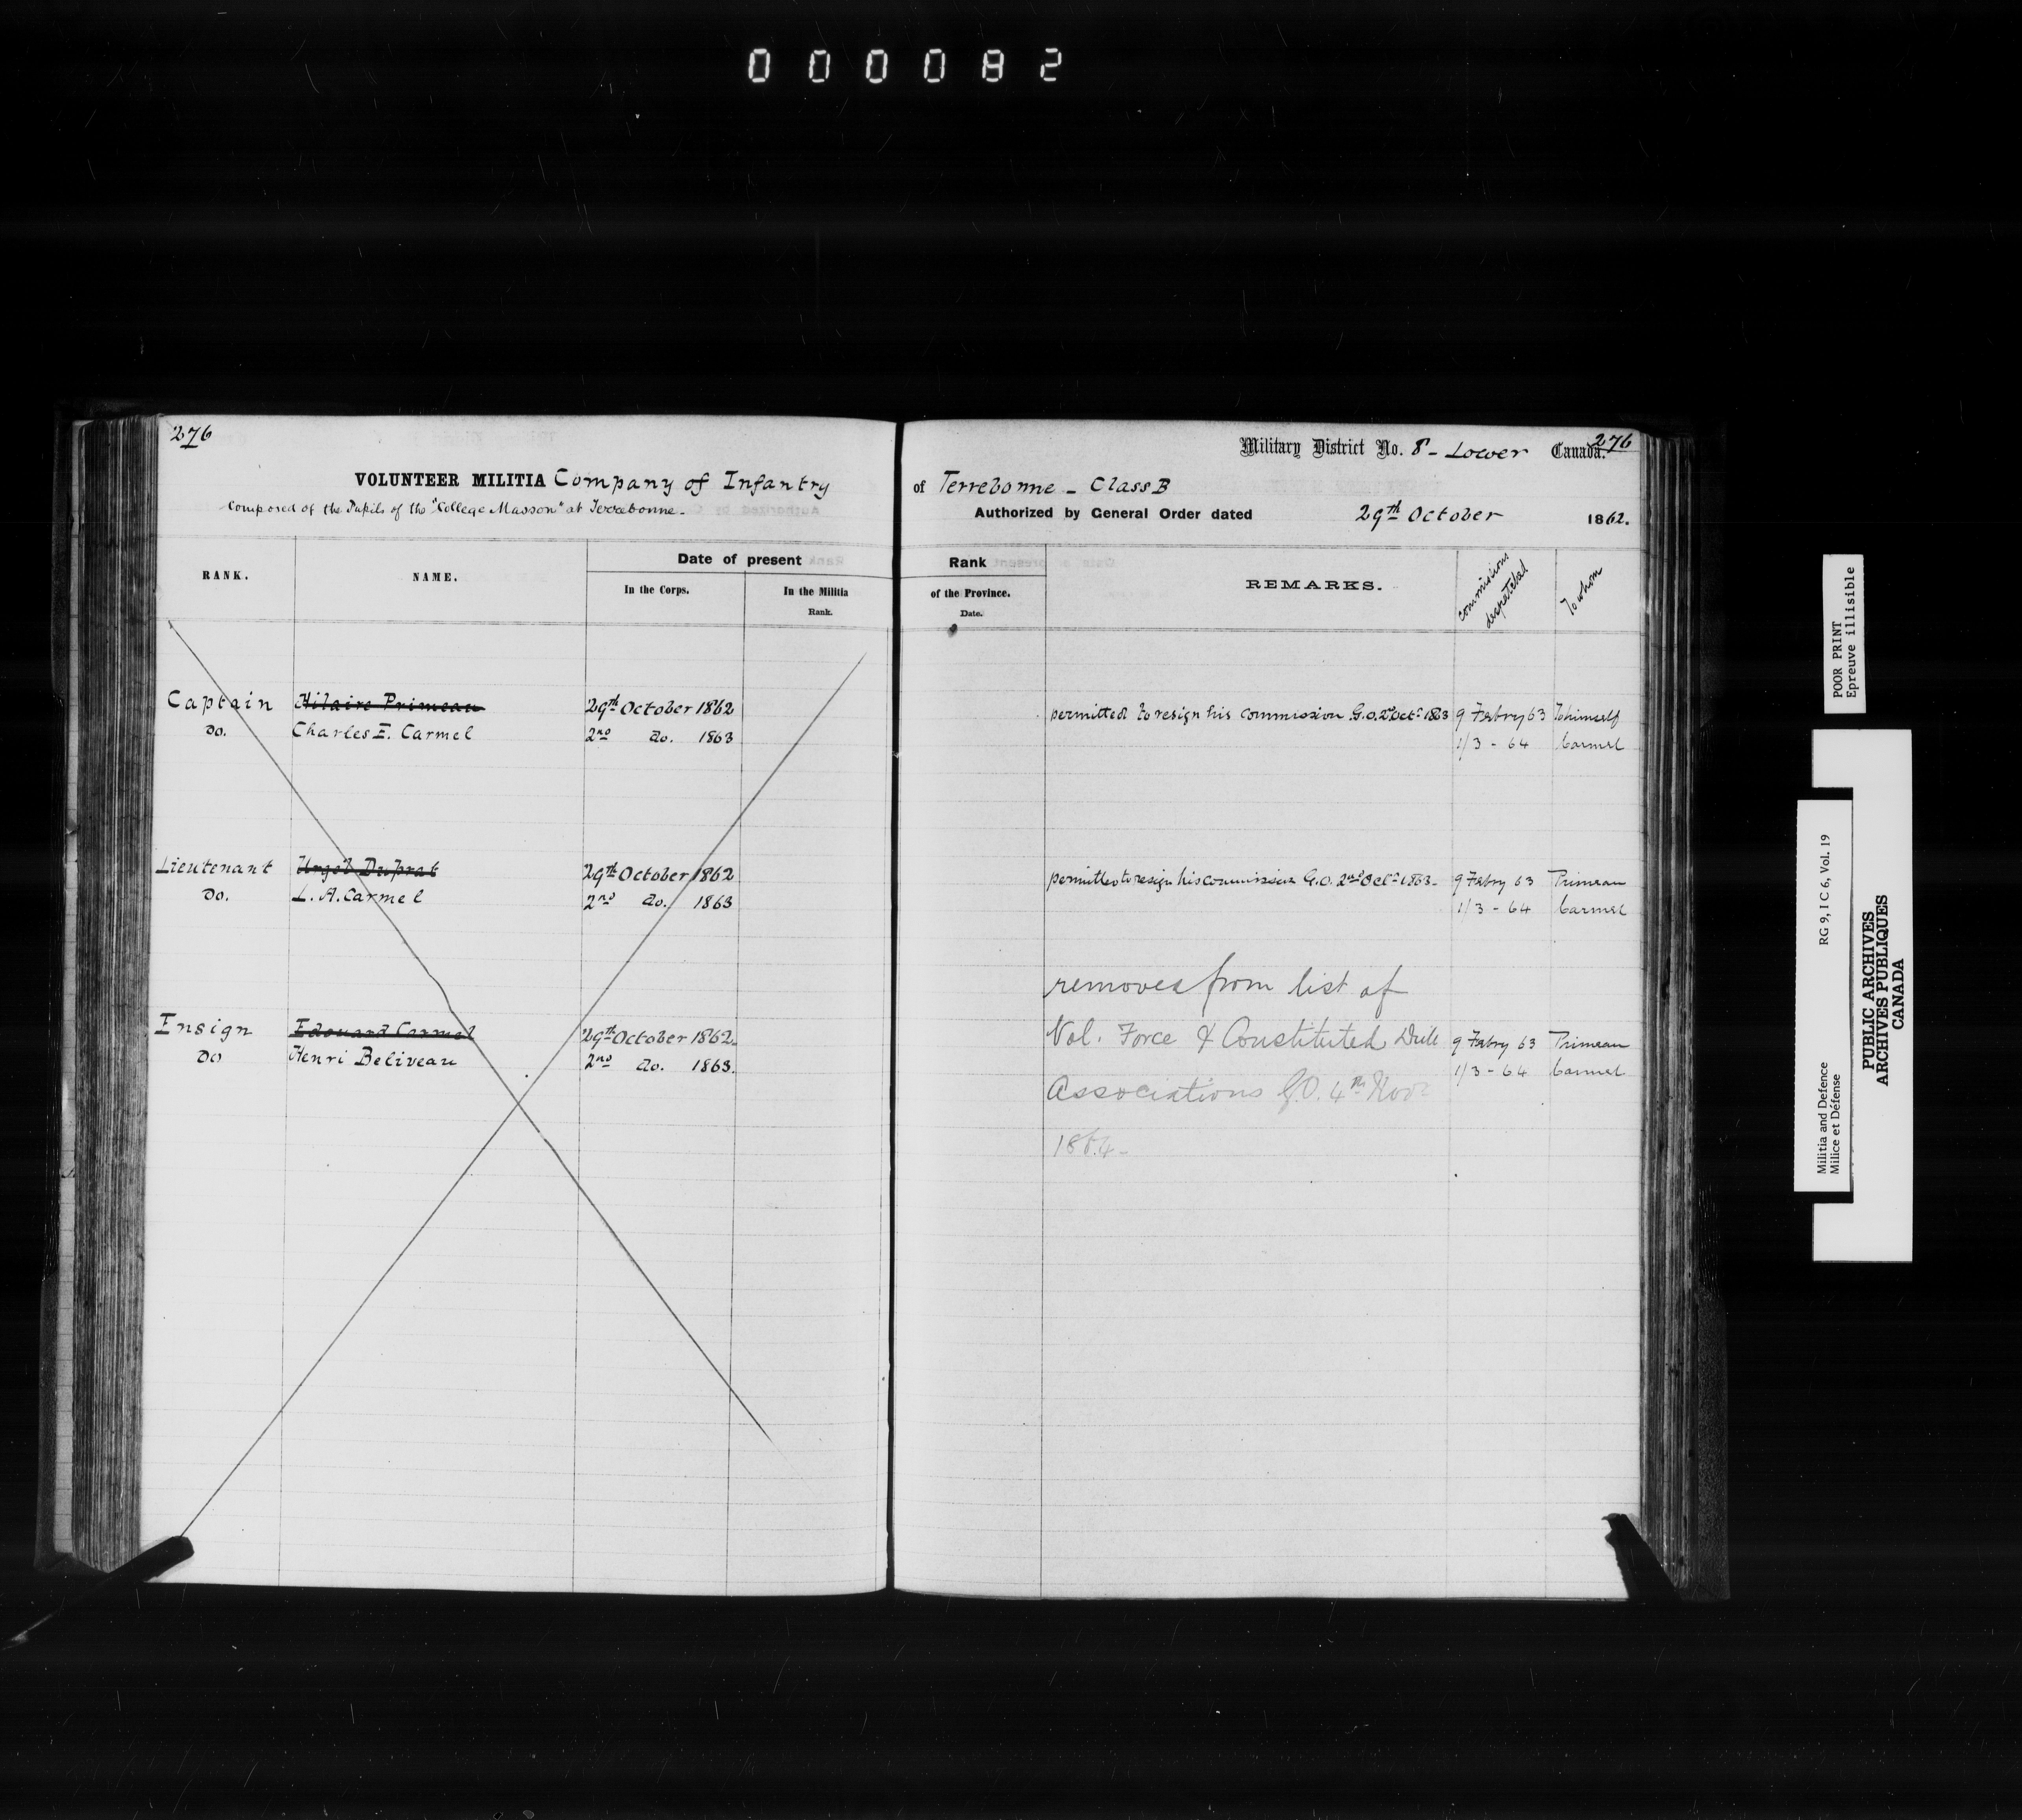 000082
276
VOLUNTEER MILITIA Company of Infantry
Composed of the Pupils of the "College Masson" at Terrebonne.
RANK.
NAME.
Date of present
In the Corps.
In the Militia
Rank.
Captain Hilaire Primeau 29th October 1862
Do. Charles E. Carmel 2nd do. 1863
Lieutenant Duprat 29th October 1862
Do. L. A. Carmel 2nd do. 1863
Ensign Edouard Carmel 29th October 1862.
Do Henri Beliveau 2nd do. 1863.
276
Military District No. 8 - Lower Canada.
of Terrebonne - Class B
Authorized by General Order dated 29th October 1862.
Rank
of the Province.
Date.
REMARKS.
commissions
despatched
To whom
permitted to resign his commission G.O. 2nd Octr 1863 9 Febry 63 To himself
1/3 - 64 Carmel
permitted to resign his commission G.O. 2nd Octr 1863. 9 Febry 63 Primeau
1/3 - 64 Carmel
removed from list of
Vol. Force & Constituted Drill 9 Febry 63 Primeau
1/3 - 64 Carmel
Associations G.O. 4th Novr
1864 -
POOR PRINT
Epreuve illisible
RG 9, I C 6, Vol. 19
Militia and Defence
Milice et Défense
PUBLIC ARCHIVES
ARCHIVES PUBLIQUES
CANADA